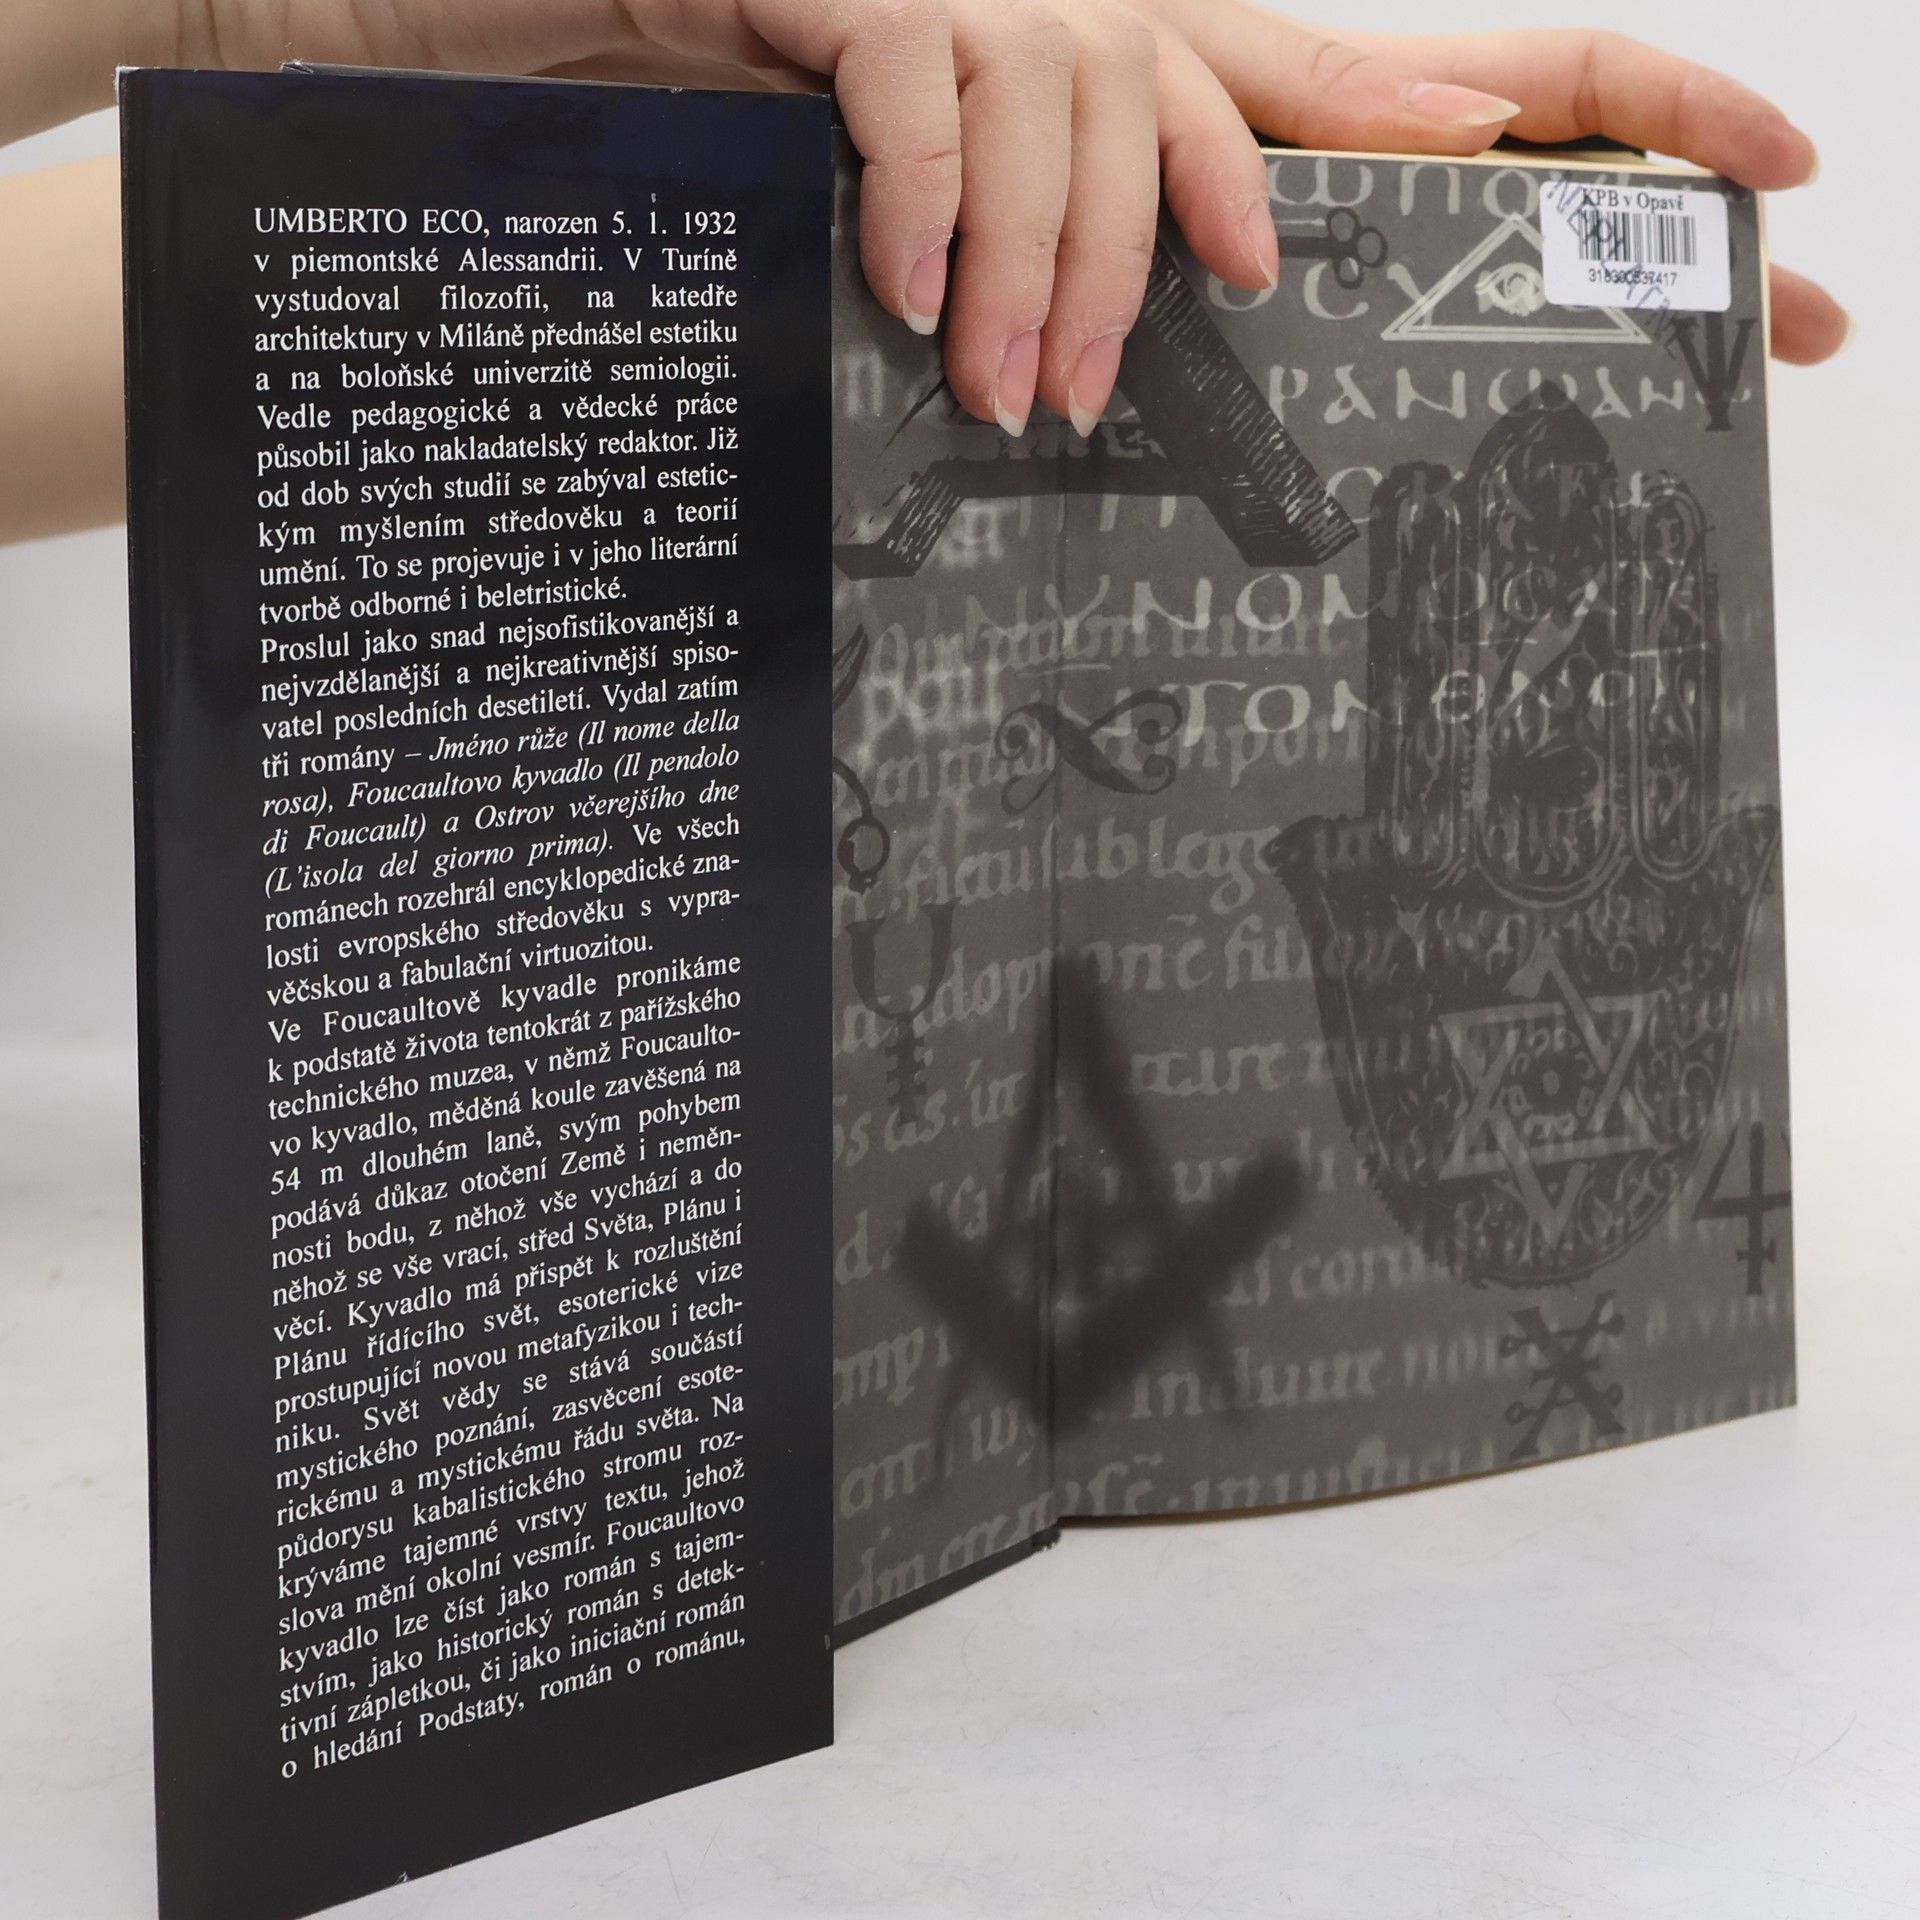 UMBERTO ECO, narozen 5. 1. 1932
v piemontské Alessandrii. V Turíně
vystudoval filozofii, na katedře
architektury v Miláně přednášel estetiku
a na boloňské univerzitě semiologii.
Vedle pedagogické a vědecké práce
působil jako nakladatelský redaktor. Již
od dob svých studií se zabýval estetic-
kým myšlením středověku a teorií
umění. To se projevuje i v jeho literární
tvorbě odborné i beletristické.
Proslul jako snad nejsofistikovanější a
nejvzdělanější a nejkreativnější spiso-
vatel posledních desetiletí. Vydal zatím
tři romány – Jméno růže (Il nome della
rosa), Foucaultovo kyvadlo (Il pendolo
di Foucault) a Ostrov včerejšího dne
(L'isola del giorno prima). Ve všech
románech rozehrál encyklopedické zna-
losti evropského středověku s vypra-
věčskou a fabulační virtuozitou.
Ve Foucaultově kyvadle pronikáme
k podstatě života tentokrát z pařížského
technického muzea, v němž Foucaulto-
vo kyvadlo, měděná koule zavěšená na
54 m dlouhém laně, svým pohybem
podává důkaz otočení Země i neměn-
nosti bodu, z něhož vše vychází a do
něhož se vše vrací, střed Světa, Plánu i
věcí. Kyvadlo má přispět k rozluštění
Plánu řídícího svět, esoterické vize
prostupující novou metafyzikou i tech-
niku. Svět vědy se stává součástí
mystického poznání, zasvěcení esote-
rickému a mystickému řádu světa. Na
půdorysu kabalistického stromu roz-
krýváme tajemné vrstvy textu, jehož
slova mění okolní vesmír. Foucaultovo
kyvadlo lze číst jako román s tajem-
stvím, jako historický román s detek-
tivní zápletkou, či jako iniciační román
o hledání Podstaty, román o románu,
KPB v Opavě